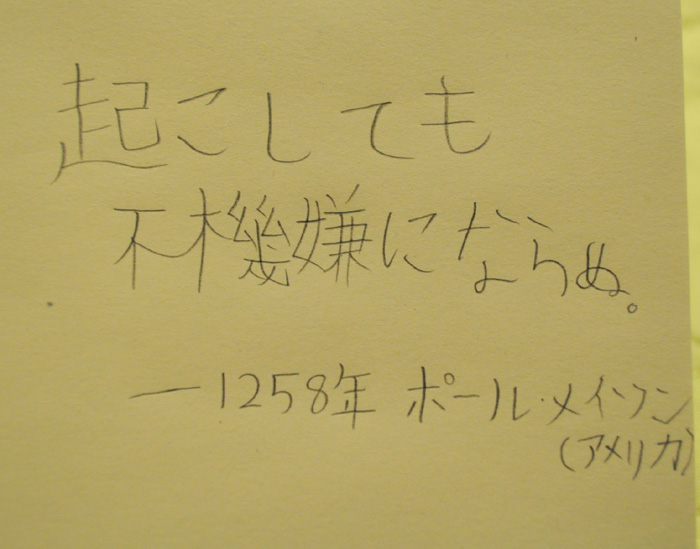 起こしても
不機嫌にならぬ。
―1258年 ポール・メイソン
(アメリカ)